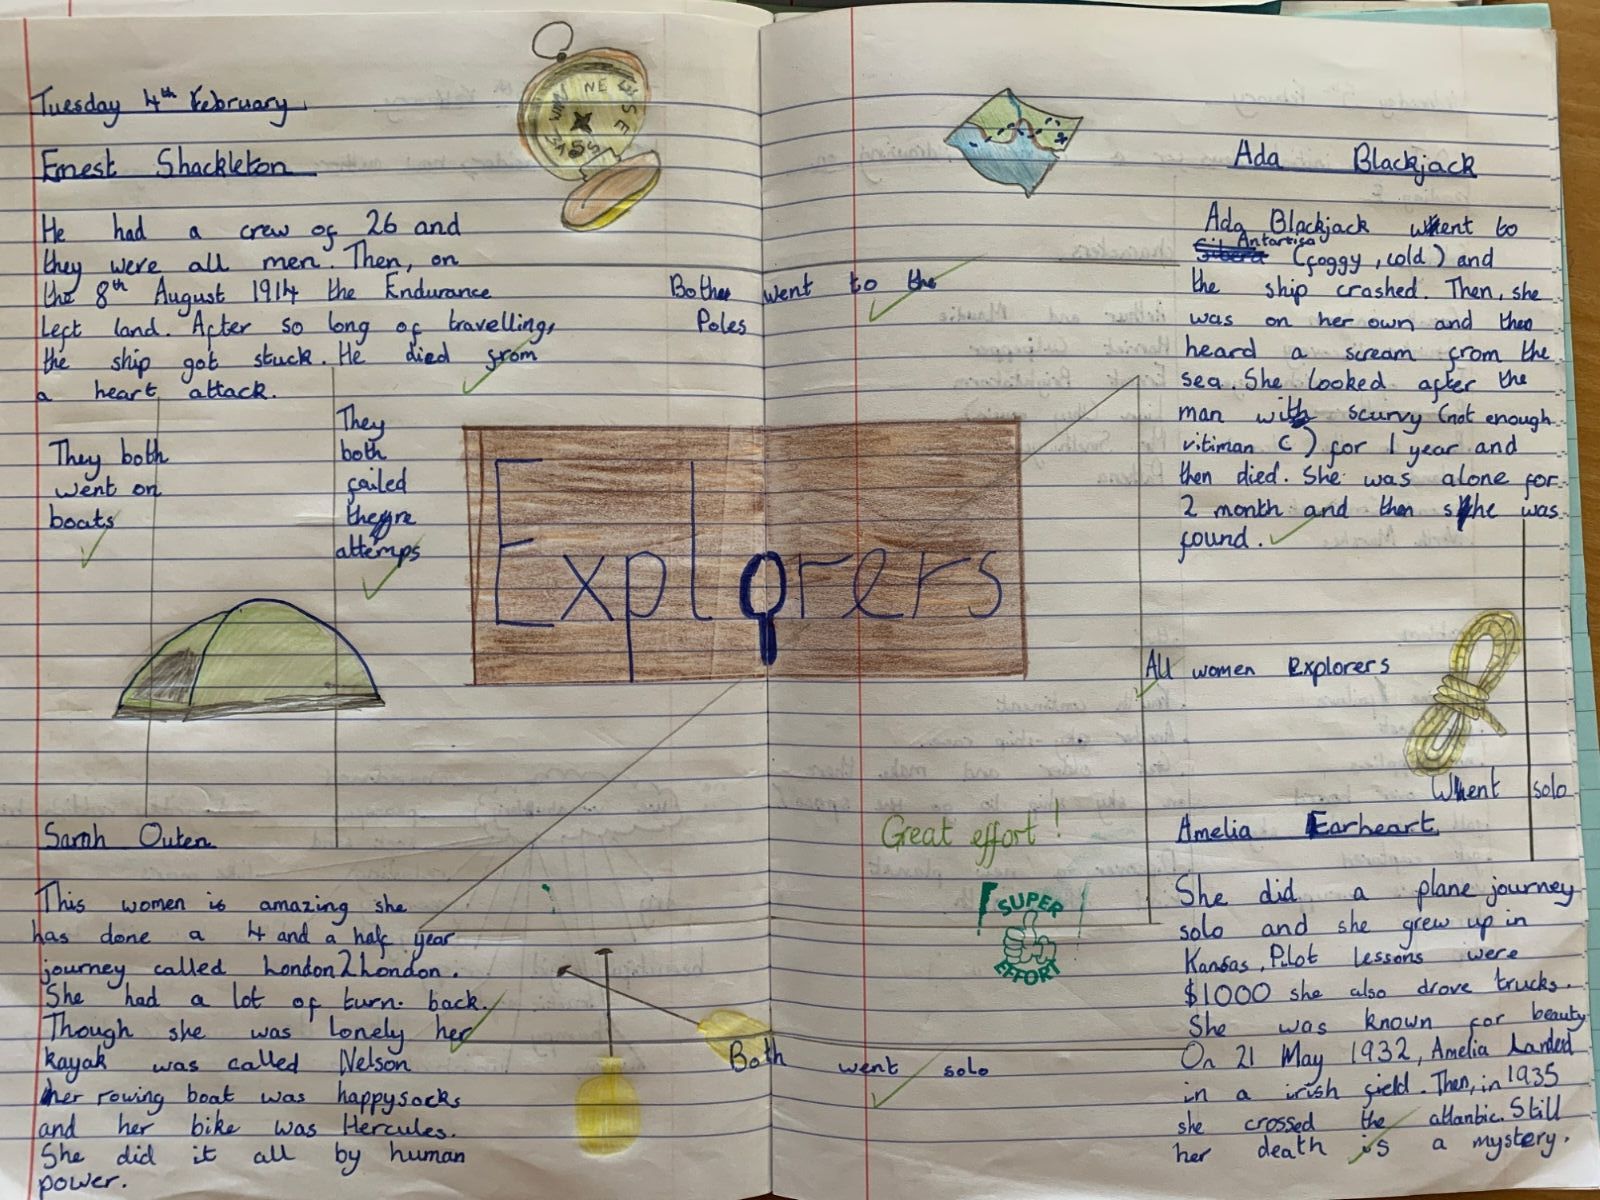 Tuesday 4th February
Ernest Shackleton
He had a crew of 26 and
they were all men. Then, on
the 8th August 1914 the Endurance
left land. After so long of travelling,
the ship got stuck. He died from
a heart attack.
They both
went on
boats
They
both
failed
theyre
attemps
Both went to the
Poles
Ada Blackjack
Ada Blackjack went to
Antartica
Sibera (foggy, cold) and
the ship crashed. Then, she
was on her own and then
heard a scream from the
sea. She looked after the
man with scurvy (not enough
vitiman C) for 1 year and
then died. She was alone for
2 month and then she was
found.
Explorers
NE
E
SE
S
SW
W
NW
All women Explorers
Went solo
Sarah Outen
This women is amazing she
has done a 4 and a half year
journey called London2London.
She had a lot of turn back.
Though she was lonely her
kayak was called Nelson
her rowing boat was happysocks
and her bike was Hercules.
She did it all by human
power.
Great effort!
SUPER
EFFORT
Both went solo
Amelia Earheart
She did a plane journey
solo and she grew up in
Kansas. Pilot lessons were
$1000 she also drove trucks.
She was known for beauty
On 21 May 1932, Amelia landed
in a irish field. Then, in 1935
she crossed the atlantic. Still
her death is a mystery.